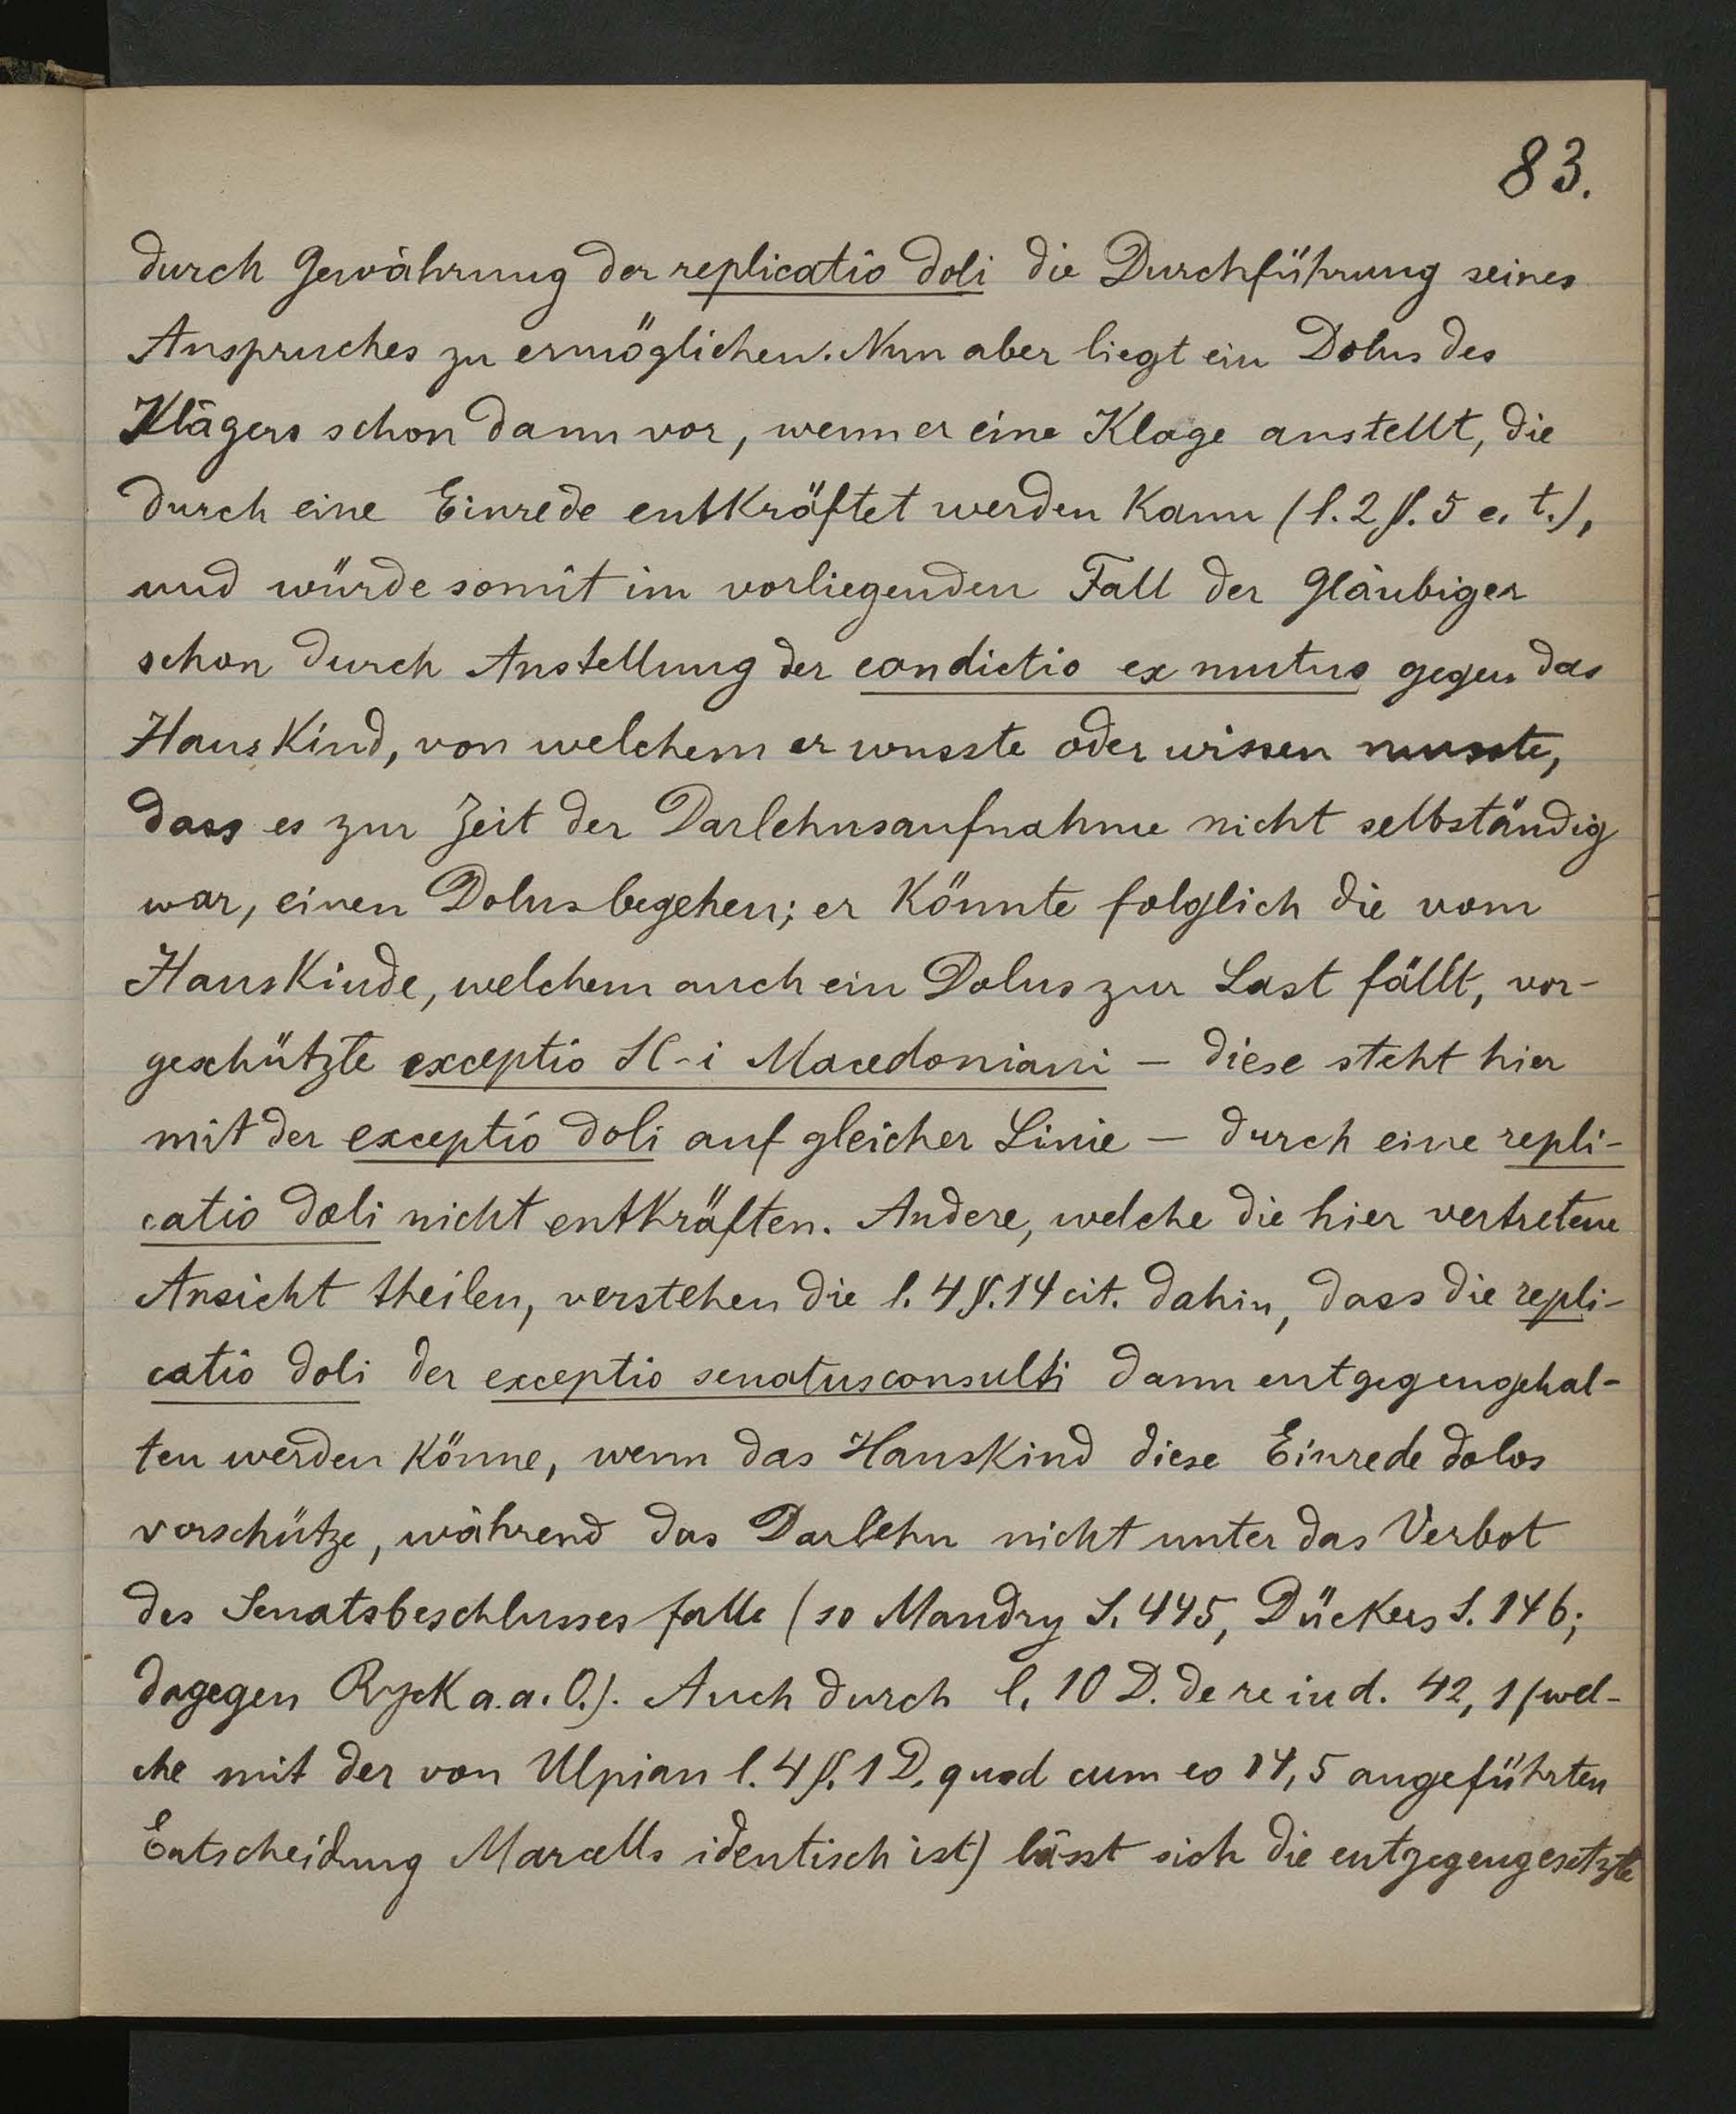 83.
durch Gewährung der replicatio doli die Durchführung seines
Anspruches zu ermöglichen. Nun aber liegt ein Dolus des
Klägers schon dann vor, wenn er eine Klage anstellt, die
durch eine Einrede entkräftet werden kann (l. 2 §. 5 e. t.),
und würde somit im vorliegenden Fall der Gläubiger
schon durch Anstellung der condictio ex mutuo gegen das
Hauskind, von welchem er wusste oder wissen musste,
dass es zur Zeit der Darlehnsaufnahme nicht selbständig
war, einen Dolus begehen; er könnte folglich die vom
Hauskinde, welchem auch ein Dolus zur Last fällt, vor-
geschützte exceptio SC-i Macedoniani – diese steht hier
mit der exceptio doli auf gleicher Linie – durch eine repli-
catio doli nicht entkräften. Andere, welche die hier vertretene
Ansicht theilen, verstehen die l. 4 §. 14 cit. dahin, dass die repli-
catio doli der exceptio senatusconsulti dann entgegengehal-
ten werden könne, wenn das Hauskind diese Einrede dolos
vorschütze, während das Darlehn nicht unter das Verbot
des Senatsbeschlusses falle (so Mandry S. 445, Dückers S. 146;
dagegen Ryck a. a. O.). Auch durch l. 10 D. de re iud. 42, 1 (wel-
che mit der von Ulpian l. 4 §. 1 D. quod cum eo 14, 5 angeführten
Entscheidung Marcells identisch ist) lässt sich die entgegengesetzte